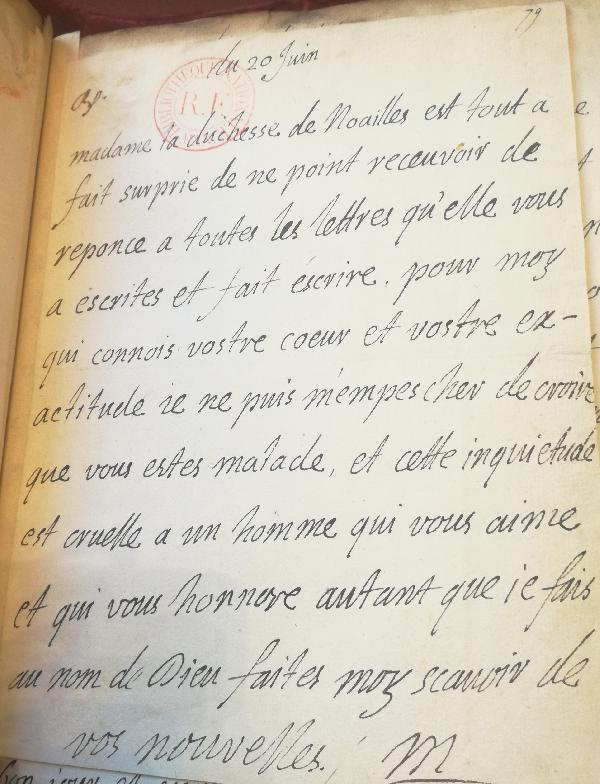 79
du 20 Juin
madame la duchesse de Noailles est tout a
fait surprie de ne point recevoir de
reponce a toutes les lettres qu'elle vous
a escrites et fait escrire. pour moy
qui connois vostre coeur et vostre ex-
actitude ie ne puis m'empescher de croire
que vous estes malade, et cette inquietude
est cruelle a un homme qui vous aime
et qui vous honnore autant que ie fais
au nom de Dieu faites moy scavoir de
vos nouvelles. M